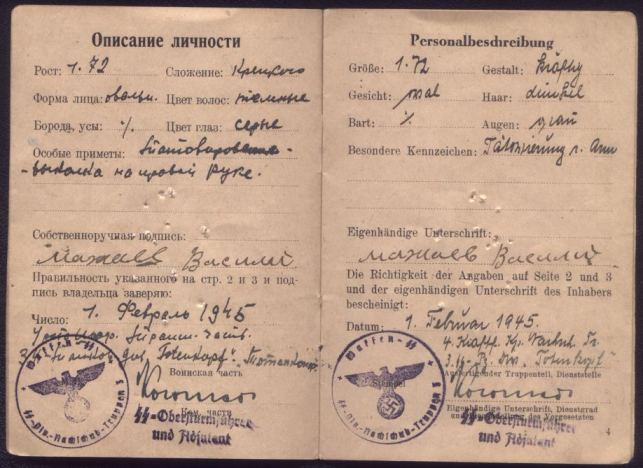 Описание личности
Рост: 1.72 Сложение: Крепкого
Форма лица: овальн. Цвет волос: темные
Борода, усы: ·/. Цвет глаз: серые
Особые приметы:
на правой руке.
Собственноручная подпись:
Мажаев Василий
Правильность указанного на стр. 2 и 3 и под-
пись владельца заверяю:
Число: 1. Февраль 1945
"Totenkopf"
Воинская часть
Waffen-SS
SS-Div.-Nachschub-Truppen 3
SS-Obersturmführer
und Adjutant
Personalbeschreibung
Größe: 1.72 Gestalt: kräftig
Gesicht: oval Haar: dunkel
Bart: ·/. Augen: grau
Besondere Kennzeichen: Tätowierung r. Arm
Eigenhändige Unterschrift:
Мажаев Василий
Die Richtigkeit der Angaben auf Seite 2 und 3
und der eigenhändigen Unterschrift des Inhabers
bescheinigt:
Datum: 1. Februar 1945
4. Kraftf. Kp.
3. SS-Pz. Div. "Totenkopf"
Ausfertigender Truppenteil, Dienststelle
Stempel
Waffen-SS
SS-Div.-Nachschub-Truppen 3
Eigenhändige Unterschrift, Dienstgrad
und Dienststellung des Vorgesetzten
SS-Obersturmführer
und Adjutant
4